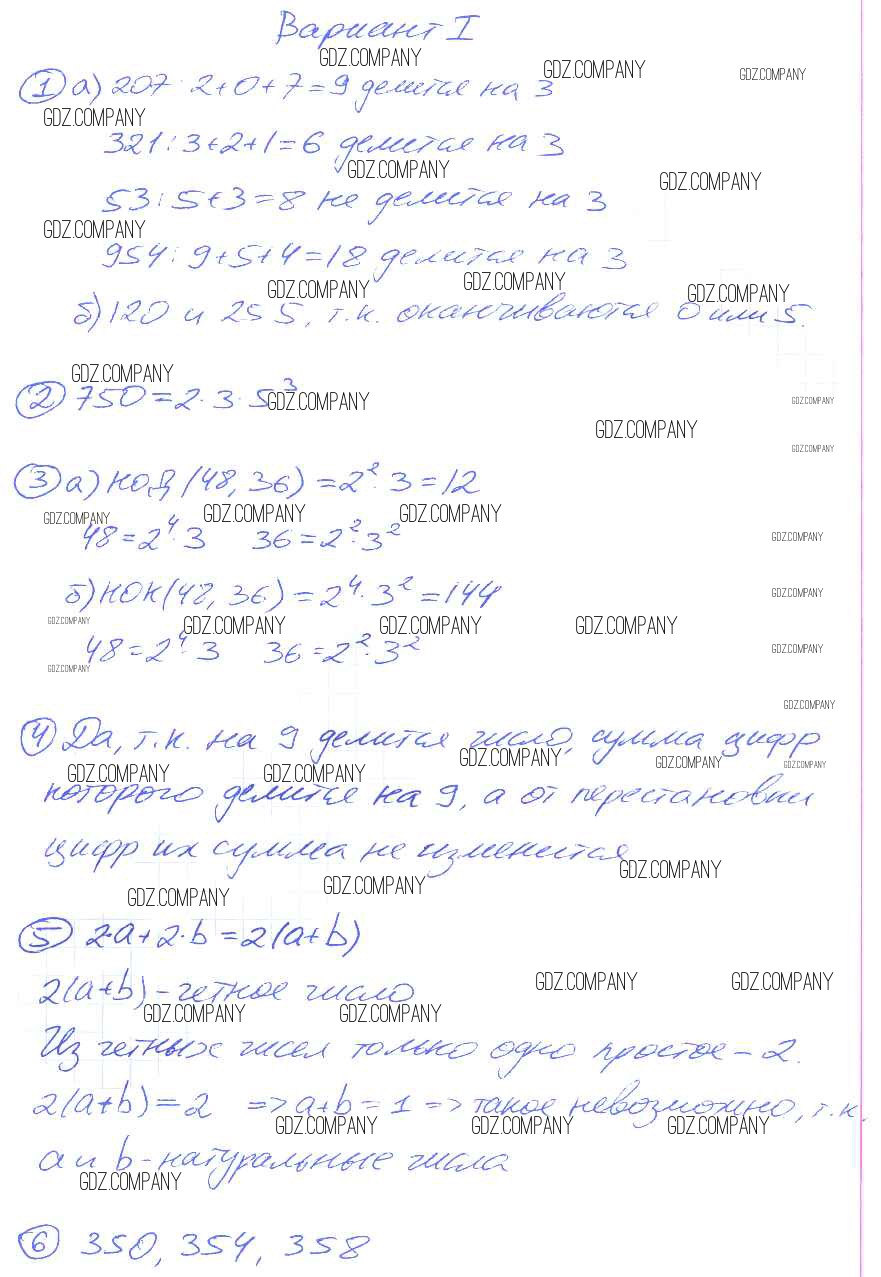 Вариант I
GDZ.COMPANY
GDZ.COMPANY
GDZ.COMPANY
① а) 207: 2+0+7=9 делится на 3
GDZ.COMPANY
321: 3+2+1=6 делится на 3
GDZ.COMPANY
GDZ.COMPANY
53: 5+3=8 не делится на 3
GDZ.COMPANY
954: 9+5+4=18 делится на 3
GDZ.COMPANY
GDZ.COMPANY
GDZ.COMPANY
б) 120 и 255, т.к. оканчиваются 0 или 5.
GDZ.COMPANY
② 750=2·3·5³
GDZ.COMPANY
GDZ.COMPANY
GDZ.COMPANY
GDZ.COMPANY
③ а) НОД (48, 36) = 2²·3=12
GDZ.COMPANY
GDZ.COMPANY
GDZ.COMPANY
48=2⁴·3 36=2²·3²
GDZ.COMPANY
б) НОК(48, 36) = 2⁴·3²=144
GDZ.COMPANY
GDZ.COMPANY
GDZ.COMPANY
GDZ.COMPANY
GDZ.COMPANY
48=2⁴·3 36=2²·3²
GDZ.COMPANY
GDZ.COMPANY
GDZ.COMPANY
④ Да, т.к. на 9 делится число, сумма цифр
GDZ.COMPANY
GDZ.COMPANY
GDZ.COMPANY
GDZ.COMPANY
GDZ.COMPANY
которого делится на 9, а от перестановки
цифр их сумма не изменится
GDZ.COMPANY
GDZ.COMPANY
GDZ.COMPANY
⑤ 2·a+2·b=2(a+b)
2(a+b) - четное число
GDZ.COMPANY
GDZ.COMPANY
GDZ.COMPANY
GDZ.COMPANY
Из четных чисел только одно простое - 2.
2(a+b)=2 => a+b=1 => такое невозможно, т.к.
GDZ.COMPANY
GDZ.COMPANY
GDZ.COMPANY
a и b - натуральные числа
GDZ.COMPANY
⑥ 350, 354, 358